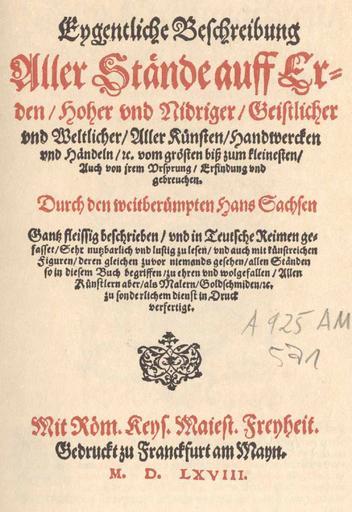 Eygentliche Beschreibung
Aller Stände auff Er-
den / Hoher vnd Nidriger / Geistlicher
vnd Weltlicher / Aller Künsten / Handwercken
vnd Händeln / ꝛc. vom grösten biß zum kleinesten /
Auch von jrem Vrsprung / Erfindung vnd
gebreuchen.
Durch den weitberümpten Hans Sachsen
Gantz fleissig beschrieben / vnd in Teutsche Reimen ge-
fasset / Sehr nutzbarlich vnd lustig zu lesen / vnd auch mit künstreichen
Figuren / deren gleichen zuvor niemands gesehen / allen Ständen
so in diesem Buch begriffen / zu ehren vnd wolgefallen / Allen
Künstlern aber / als Malern / Goldschmiden / ꝛc.
zu sonderlichem dienst in Druck
verfertigt.
A 925 AM
571
Mit Röm. Keys. Maiest. Freyheit.
Gedruckt zu Franckfurt am Mayn.
M. D. LXVIII.